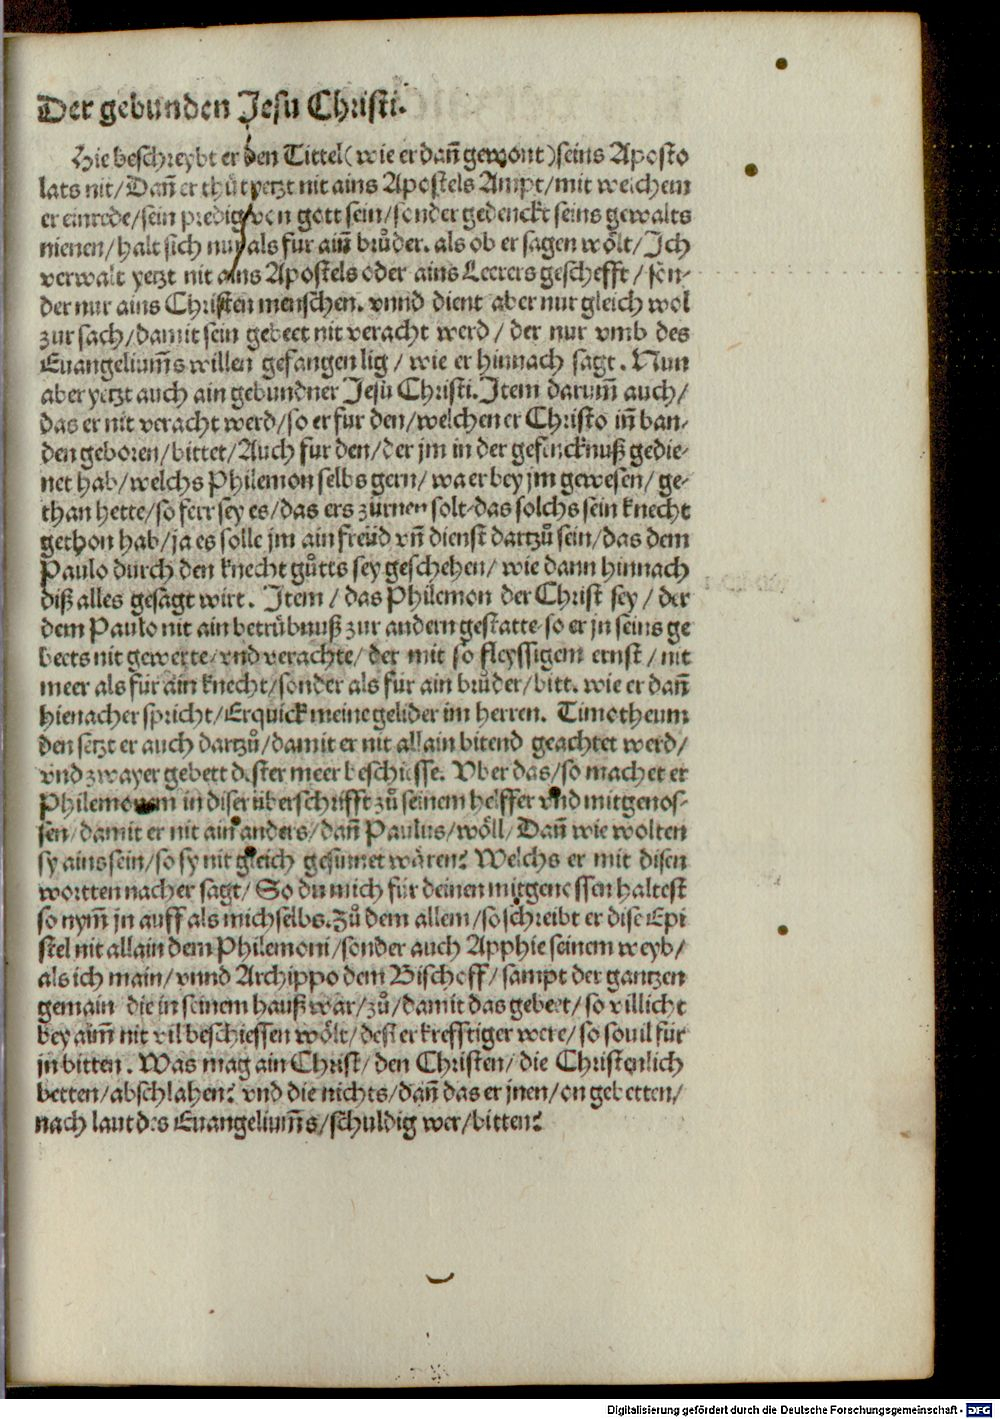 Der gebunden Jesu Christi.
Hie beschreybt er den Tittel (wie er dañ gewont) seins Aposto
lats nit/ Dañ er thůt yetzt nit ains Apostels Ampt/ mit welchem
er einrede/ sein predig von gott sein/ sonder gedenckt seins gewalts
nienen/ halt sich nur als fur aiñ brůder. als ob er sagen wölt/ Jch
verwalt yetzt nit ains Apostels oder ains Leerers geschefft/ son-
der nur ains Christen menschen. vnnd dient aber nur gleich wol
zur sach/ damit sein gebeet nit veracht werd/ der nur vmb des
Euangelium̃s willen gefangen lig/ wie er hinnach sagt. Nun
aber yetzt auch ain gebundner Jesu Christi. Item darum̃ auch/
das er nit veracht werd/ so er fur den/ welchen er Christo iñ ban-
den geboren/ bittet/ Auch fur den/ der jm in der gefencknuß gedie-
net hab/ welchs Philemon selbs gern/ wa er bey jm gewesen/ ge-
than hette/ so ferr sey es/ das ers zürnen solt/ das solchs sein knecht
gethon hab/ ja es solle jm ain freüd vñ dienst dartzů sein/ das dem
Paulo durch den knecht gůtts sey geschehen/ wie dann hinnach
diß alles gesagt wirt. Item/ das Philemon der Christ sey/ der
dem Paulo nit ain betrübnuß zur andern gestatte/ so er jn seins ge
beets nit gewerte/ vnd verachte/ der mit so fleyssigem ernst/ nit
meer als für ain knecht/ sonder als für ain brůder/ bitt. wie er dañ
hienacher spricht/ Erquick meine gelider im herren. Timotheum
den setzt er auch dartzů/ damit er nit allain bitend geachtet werd/
vnd zwayer gebett dester meer beschiesse. Vber das/ so machet er
Philemonem in diser überschrifft zů seinem helffer vnd mitgenos-
sen/ damit er nit ain anders/ dañ Paulus/ wöll/ Dañ wie wolten
sy ains sein/ so sy nit gleich gesinnet wären? Welchs er mit disen
wortten nacher sagt/ So du mich für deinen mitgenossen haltest
so nym̃ jn auff als mich selbs. Zů dem allem/ so schreibt er dise Epi
stel nit allain dem Philemoni/ sonder auch Apphie seinem weyb/
als ich main/ vnnd Archippo dem Bischoff/ sampt der gantzen
gemain die in seinem hauß war/ zů/ damit das gebeet/ so villicht
bey aim̃ nit vil beschiessen wölt/ dest er krefftiger were/ so souil für
jn bitten. Was mag ain Christ/ den Christen/ die Christenlich
betten/ abschlahen? vnd die nichts/ dañ das er jnen/ on gebetten/
nach laut des Euangelium̃s/ schuldig wer/ bitten?
Digitalisierung gefördert durch die Deutsche Forschungsgemeinschaft - DFG